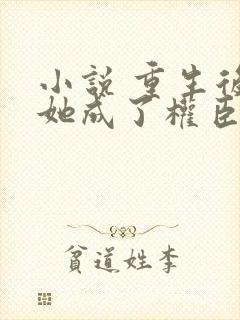 小說 重生後
她成了權臣
貧道姓李